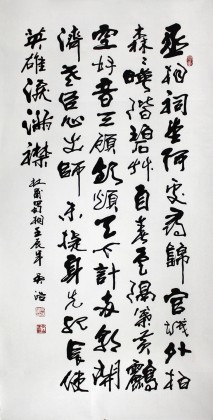 丞相祠堂何處尋錦官城外柏
森森映階碧艸自春色隔葉黄鸝
空好音三顧頻煩天下計兩朝開
濟老臣心出師未捷身先死長使
英雄淚滿襟
杜甫蜀相壬辰年